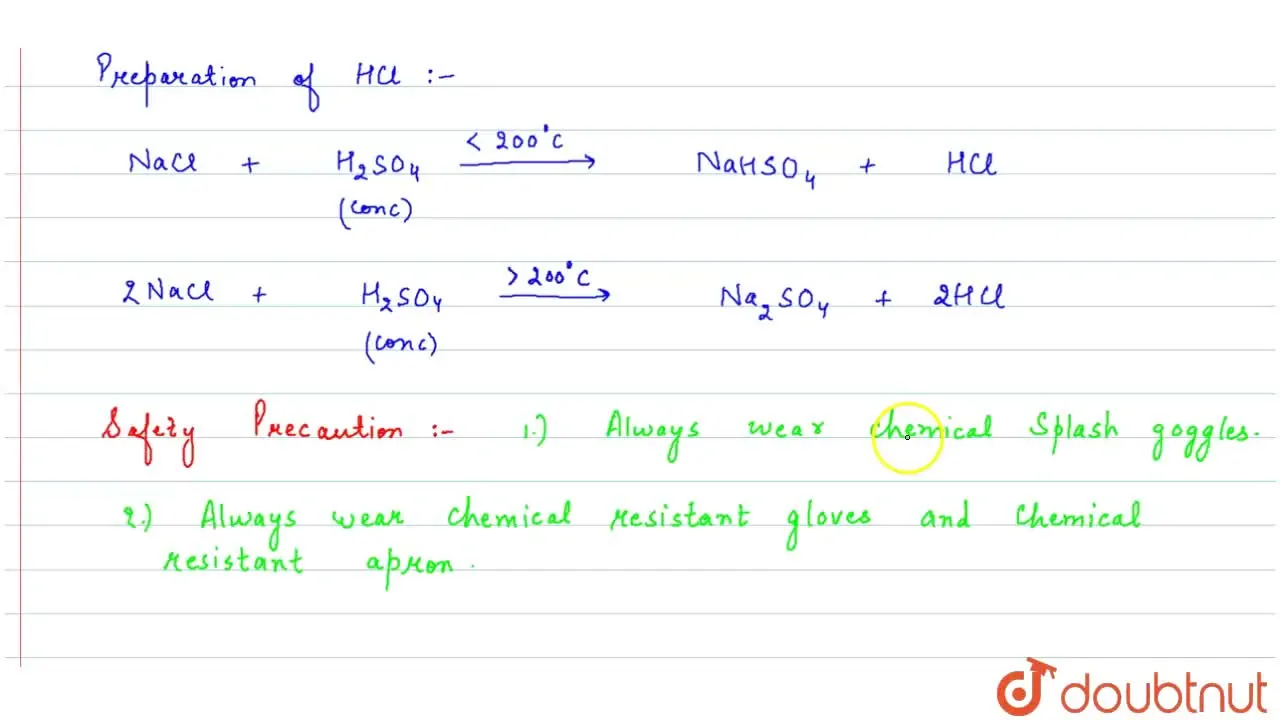 Preparation of HCl :-
< 200°C
NaCl + H₂SO₄ ⟶ NaHSO₄ + HCl
(conc)
> 200°C
2NaCl + H₂SO₄ ⟶ Na₂SO₄ + 2HCl
(conc)
Safety Precaution :- 1.) Always wear chemical Splash goggles.
2.) Always wear chemical resistant gloves and chemical
resistant apron.
doubtnut